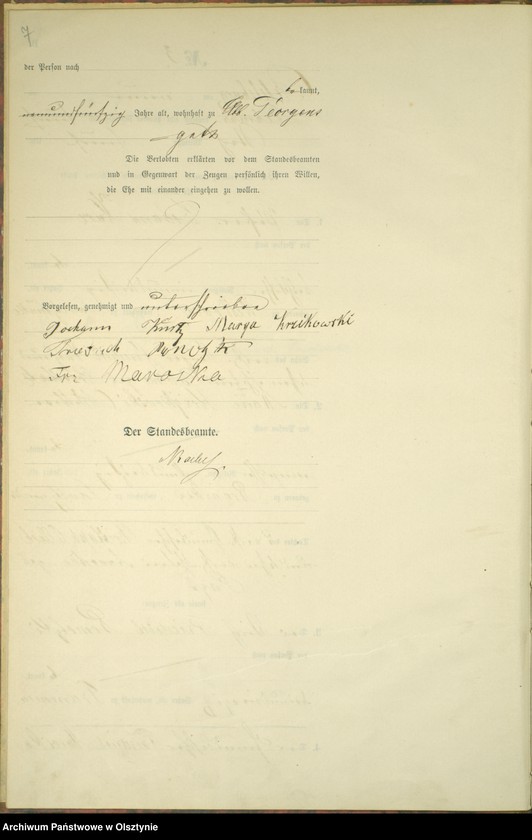 7
der Person nach
be kannt,
neunundfünfzig Jahre alt, wohnhaft zu Alb. Georgens
guth
Die Verlobten erklärten vor dem Standesbeamten
und in Gegenwart der Zeugen persönlich ihren Willen,
die Ehe mit einander eingehen zu wollen.
Vorgelesen, genehmigt und unterschrieben
Johann Marya
Frz Maroska
Der Standesbeamte.
Archiwum Państwowe w Olsztynie